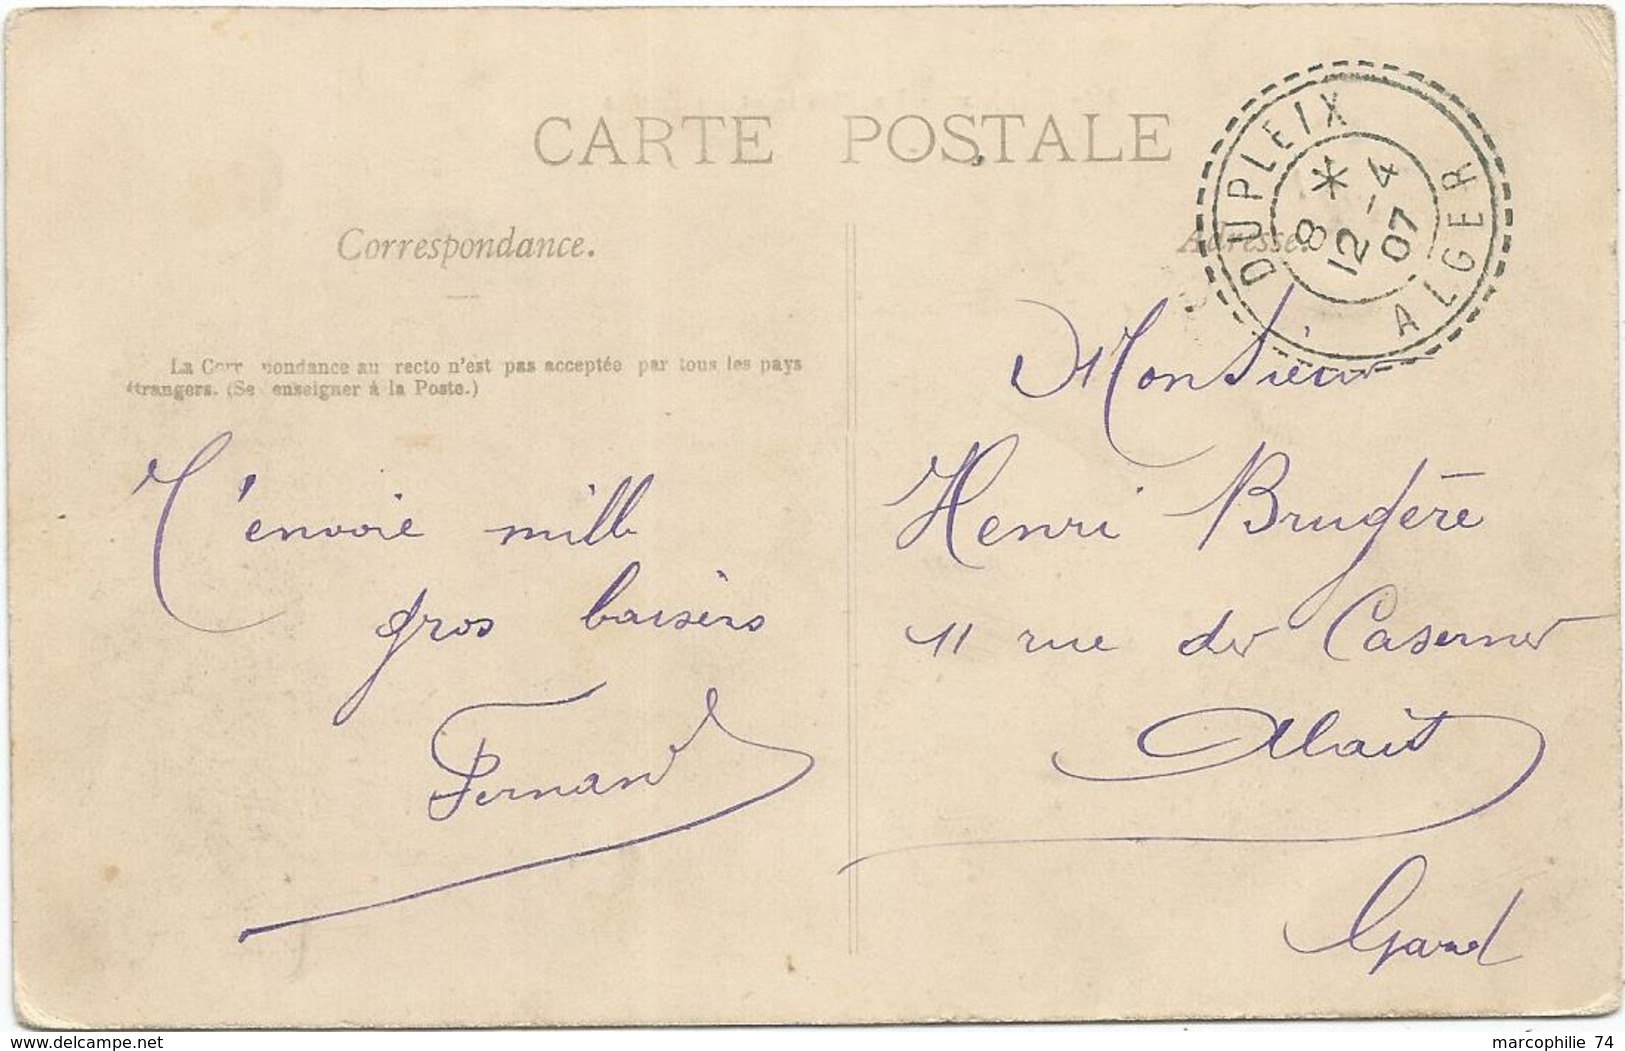 CARTE POSTALE
Correspondance.
Adresse.
DUPLEIX
*
8
12 -4
07
ALGER
La Corr pondance au recto n'est pas acceptée par tous les pays
étrangers. (Se enseigner à la Poste.)
T'envoie mille
gros baisers
Fernand
Monsieur
Henri Brugère
11 rue des Casernes
Alais
Gard
delcampe.net
marcophilie 74